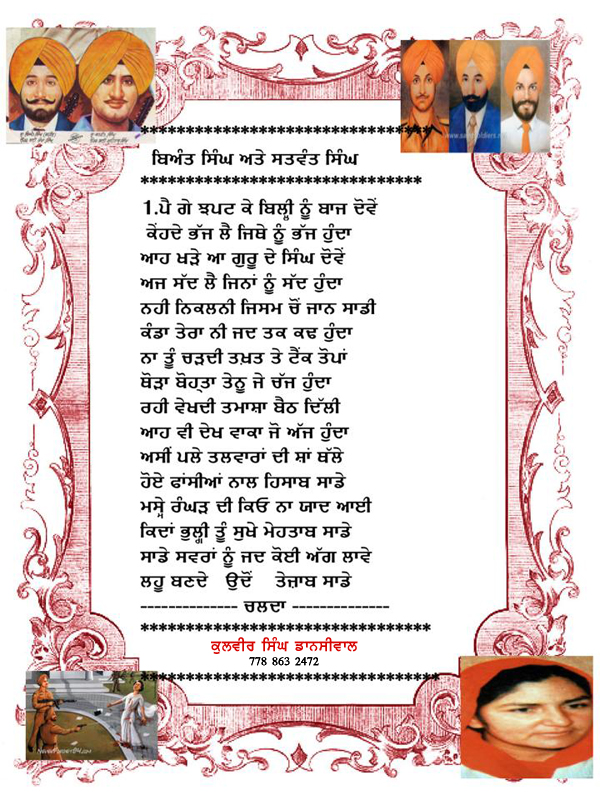 ******************************
ਬਿਅੰਤ ਸਿੰਘ ਅਤੇ ਸਤਵੰਤ ਸਿੰਘ
******************************
1.ਪੈ ਗੇ ਝਪਟ ਕੇ ਬਿਲ੍ਹੀ ਨੂੰ ਬਾਜ ਦੋਵੇਂ
ਕੇਂਹਦੇ ਭੱਜ ਲੈ ਜਿਥੇ ਨੂੰ ਭੱਜ ਹੁੰਦਾ
ਆਹ ਖੜੇ ਆ ਗੁਰੂ ਦੇ ਸਿੰਘ ਦੋਵੇਂ
ਅਜ ਸੱਦ ਲੈ ਜਿਨਾਂ ਨੂੰ ਸੱਦ ਹੁੰਦਾ
ਨਹੀ ਨਿਕਲਨੀ ਜਿਸਮ ਚੋਂ ਜਾਨ ਸਾਡੀ
ਕੰਡਾ ਤੇਰਾ ਨੀ ਜਦ ਤਕ ਕਢ ਹੁੰਦਾ
ਨਾ ਤੂੰ ਚੜਦੀ ਤਖ਼ਤ ਤੇ ਟੈਂਕ ਤੋਪਾਂ
ਥੋੜਾ ਬੋਹਤਾ ਤੇਨੂ ਜੇ ਚੱਜ ਹੁੰਦਾ
ਰਹੀ ਵੇਖਦੀ ਤਮਾਸ਼ਾ ਬੈਠ ਦਿੱਲੀ
ਆਹ ਵੀ ਦੇਖ ਵਾਕਾ ਜੋ ਅੱਜ ਹੁੰਦਾ
ਅਸੀਂ ਪਲੇ ਤਲਵਾਰਾਂ ਦੀ ਸ਼ਾਂ ਥੱਲੇ
ਹੋਏ ਫਾਂਸੀਆਂ ਨਾਲ ਹਿਸਾਬ ਸਾਡੇ
ਮਸ੍ਹੇ ਰੰਘੜ ਦੀ ਕਿਓ ਨਾ ਯਾਦ ਆਈ
ਕਿਦਾਂ ਭੁਲ੍ਹੀ ਤੂੰ ਸੁਖੇ ਮੇਹਤਾਬ ਸਾਡੇ
ਸਾਡੇ ਸਵਰਾਂ ਨੂੰ ਜਦ ਕੋਈ ਅੱਗ ਲਾਵੇ
ਲਹੂ ਬਣਦੇ ਉਦੋਂ ਤੇਜ਼ਾਬ ਸਾਡੇ
-------------- ਚਲਦਾ --------------
******************************
ਕੁਲਵੀਰ ਸਿੰਘ ਡਾਨਸੀਵਾਲ
778 863 2472
******************************